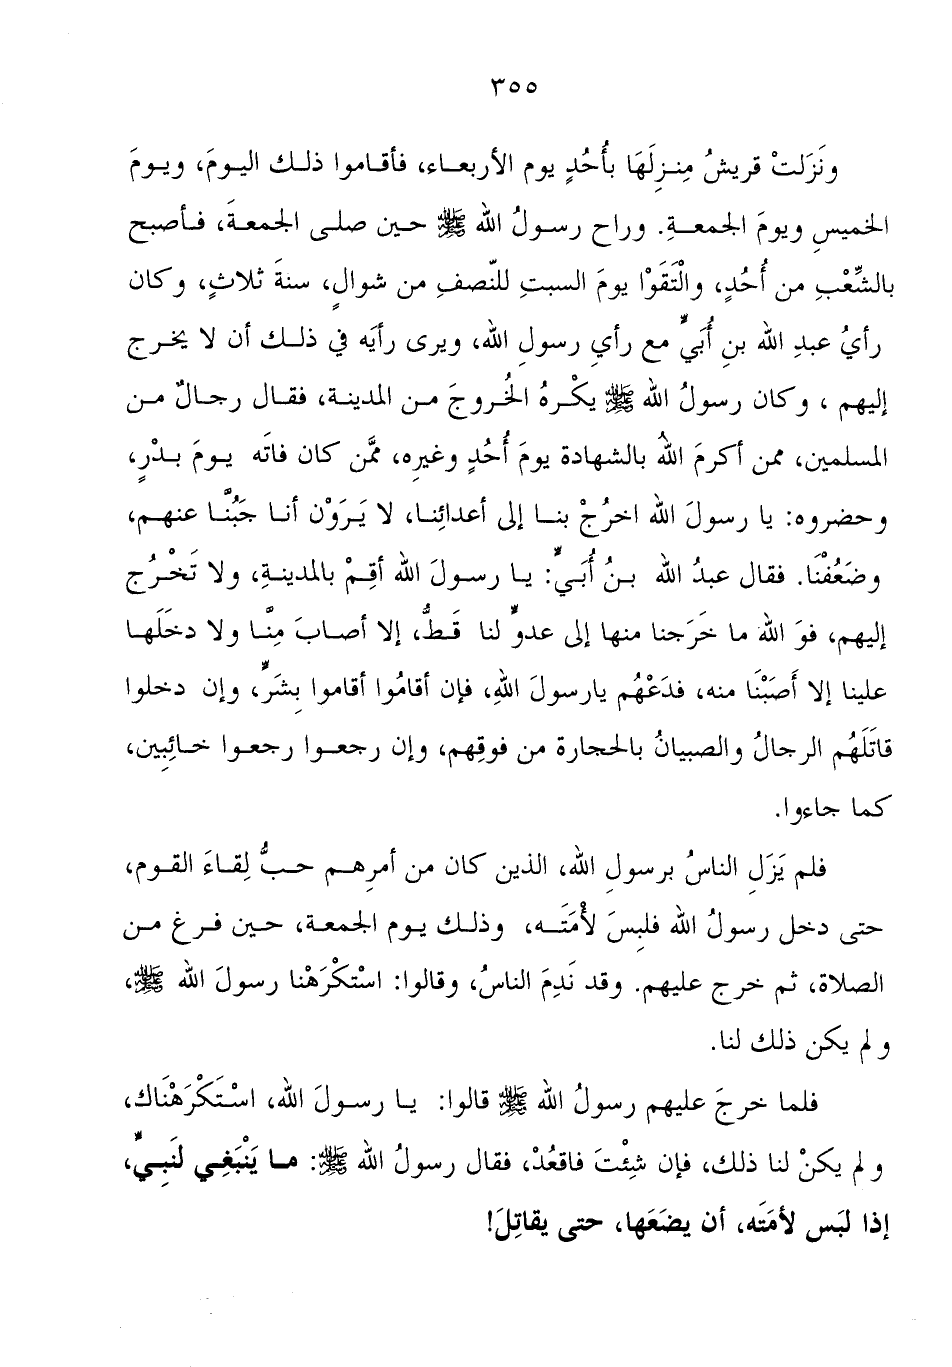 ٣٥٥
ونَزَلتْ قريشُ مِنـزِلَهَا بأُحُدٍ يوم الأربعـاء، فأقـاموا ذلـك اليـومَ، ويـومَ
الخميسِ ويومَ الجمعـةِ. وراح رسـولُ الله ﷺ حـين صلـى الجمعـةَ، فـأصبح
بالشِّعْبِ من أُحُدٍ، والْتَقَوْا يومَ السبتِ للنّصفِ من شوالٍ، سنةَ ثلاثٍ، وكان
رأيُ عبدِ الله بنِ أُبَيٍّ مع رأيِ رسولِ الله، ويرى رأيَه في ذلـك أن لا يخـرج
إليهم ، وكان رسولُ الله ﷺ يكْـرهُ الخُـروجَ مـن المدينـة، فقـال رجـالٌ مـن
المسلمين، ممن أكرمَ اللهُ بالشهادة يومَ أُحُدٍ وغيرِه، ممَّن كان فاتَه يـومَ بـدْرٍ،
وحضروه: يا رسولَ الله اخرُجْ بنـا إلى أعدائِنـا، لا يَـرَوْن أنـا جَبُنَّـا عنهـم،
وضَعُفْنَا. فقال عبدُ الله بـنُ أُبَـيٍّ: يـا رسـولَ الله أقِـمْ بالمدينـةِ، ولا تَخْـرُج
إليهم، فوَ الله ما خَرَجنا منها إلى عدوٍّ لنا قَـطُّ، إلا أصـابَ مِنَّـا ولا دخلَهـا
علينا إلا أَصَبْنَا منه، فدَعْهُم يارسولَ اللهِ، فإن أقامُوا أقاموا بِشَرٍّ، وإن دخلوا
قاتَلَهُم الرجالُ والصبيانُ بالحجارة من فوقِهم، وإن رجعـوا رجعـوا خـائِبين،
كما جاءوا.
فلم يَزَلِ الناسُ برسولِ الله، الذين كان من أمرِهـم حـبُّ لِقـاءَ القـوم،
حتى دخل رسولُ الله فلبِسَ لأْمَتَـه، وذلـك يـوم الجمعـة، حـين فـرغ مـن
الصلاة، ثم خرج عليهم. وقد نَدِمَ الناسُ، وقالوا: اسْتكْرَهْنا رسولَ الله ﷺ،
ولم يكن ذلك لنا.
فلما خرجَ عليهم رسولُ الله ﷺ قالوا: يـا رسـولَ الله، اسْـتَكْرَهْنَاك،
ولم يكنْ لنا ذلك، فإن شِئْتَ فاقعُدْ، فقال رسولُ الله ﷺ: مـا يَنْبَغِـي لنَبِـيٍّ،
إذا لبَس لأمَتَه، أن يضَعَها، حتى يقاتِلَ!